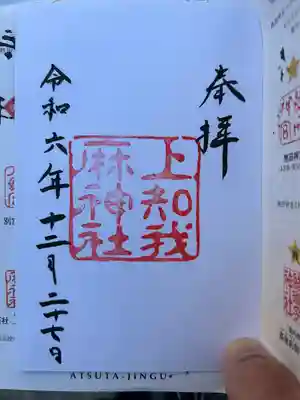 奉拝
上知我
麻神社
令和六年十二月二十七日
ATSUTA-JINGU